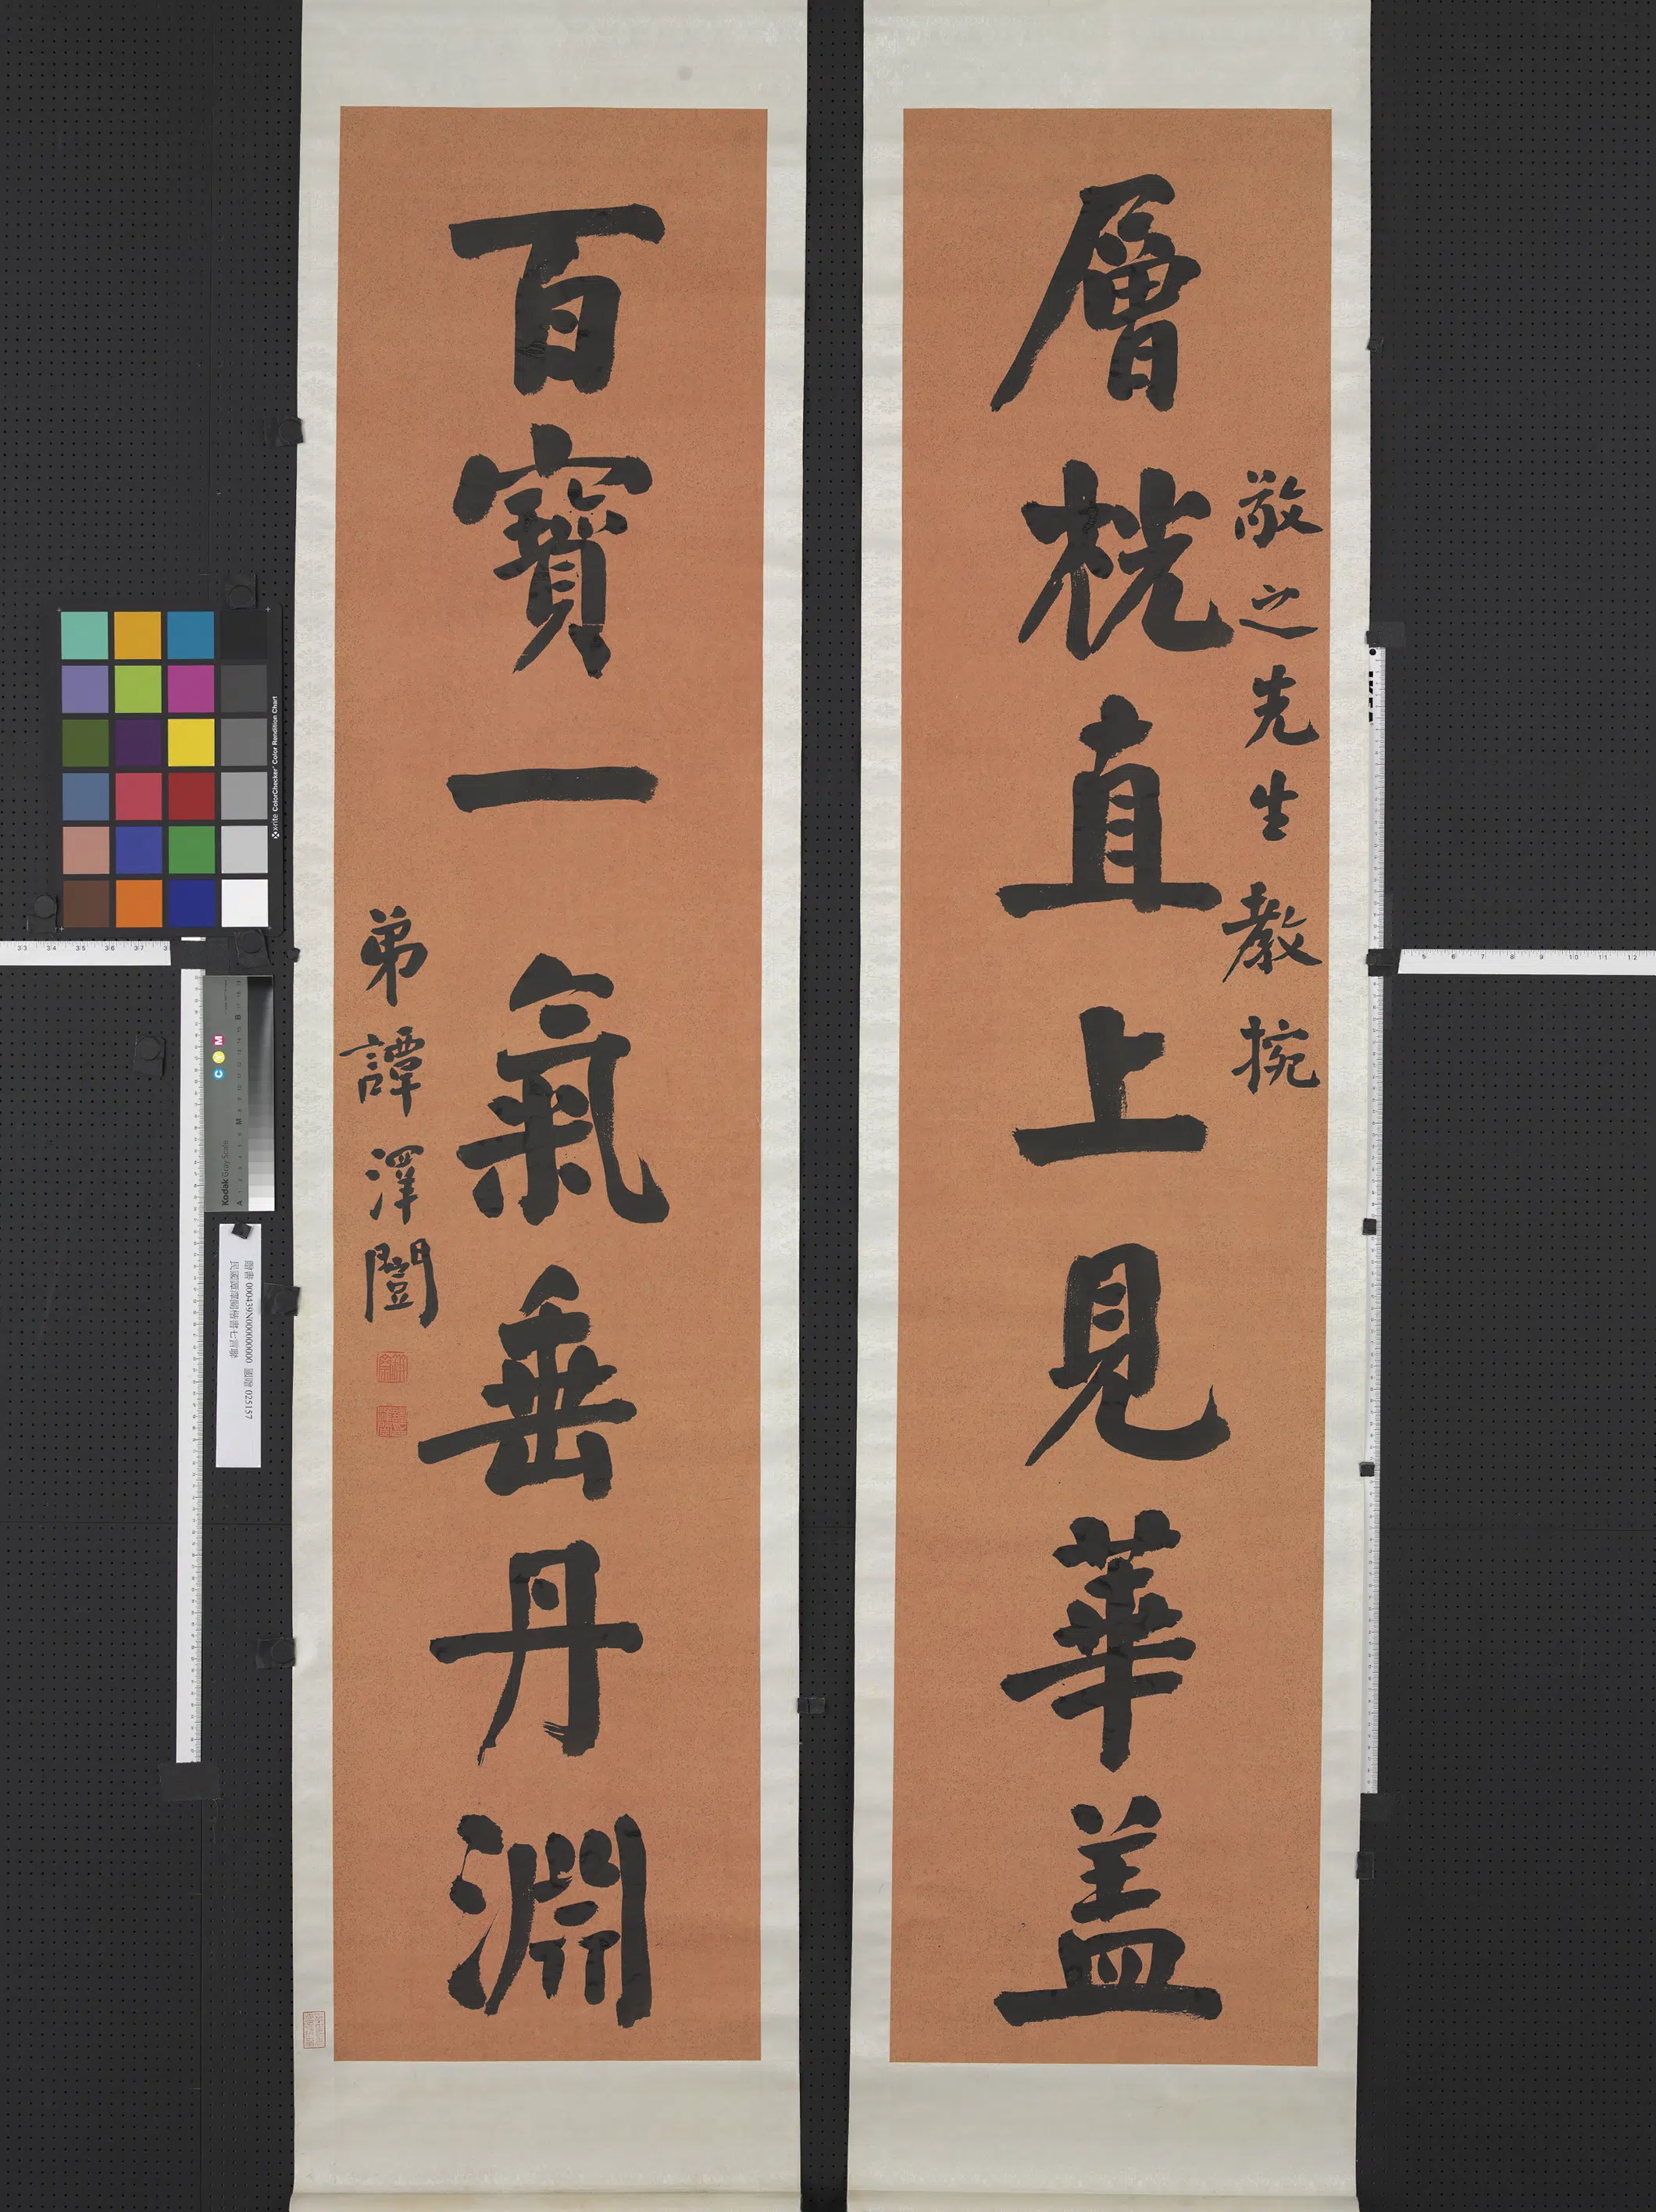 層桄直上見華蓋
敬之先生教捥
百寶一氣垂丹淵
弟譚澤闓
x-rite ColorChecker Color Rendition Chart
Kodak Gray Scale
C Y M
A M B
000439N000000000 025157